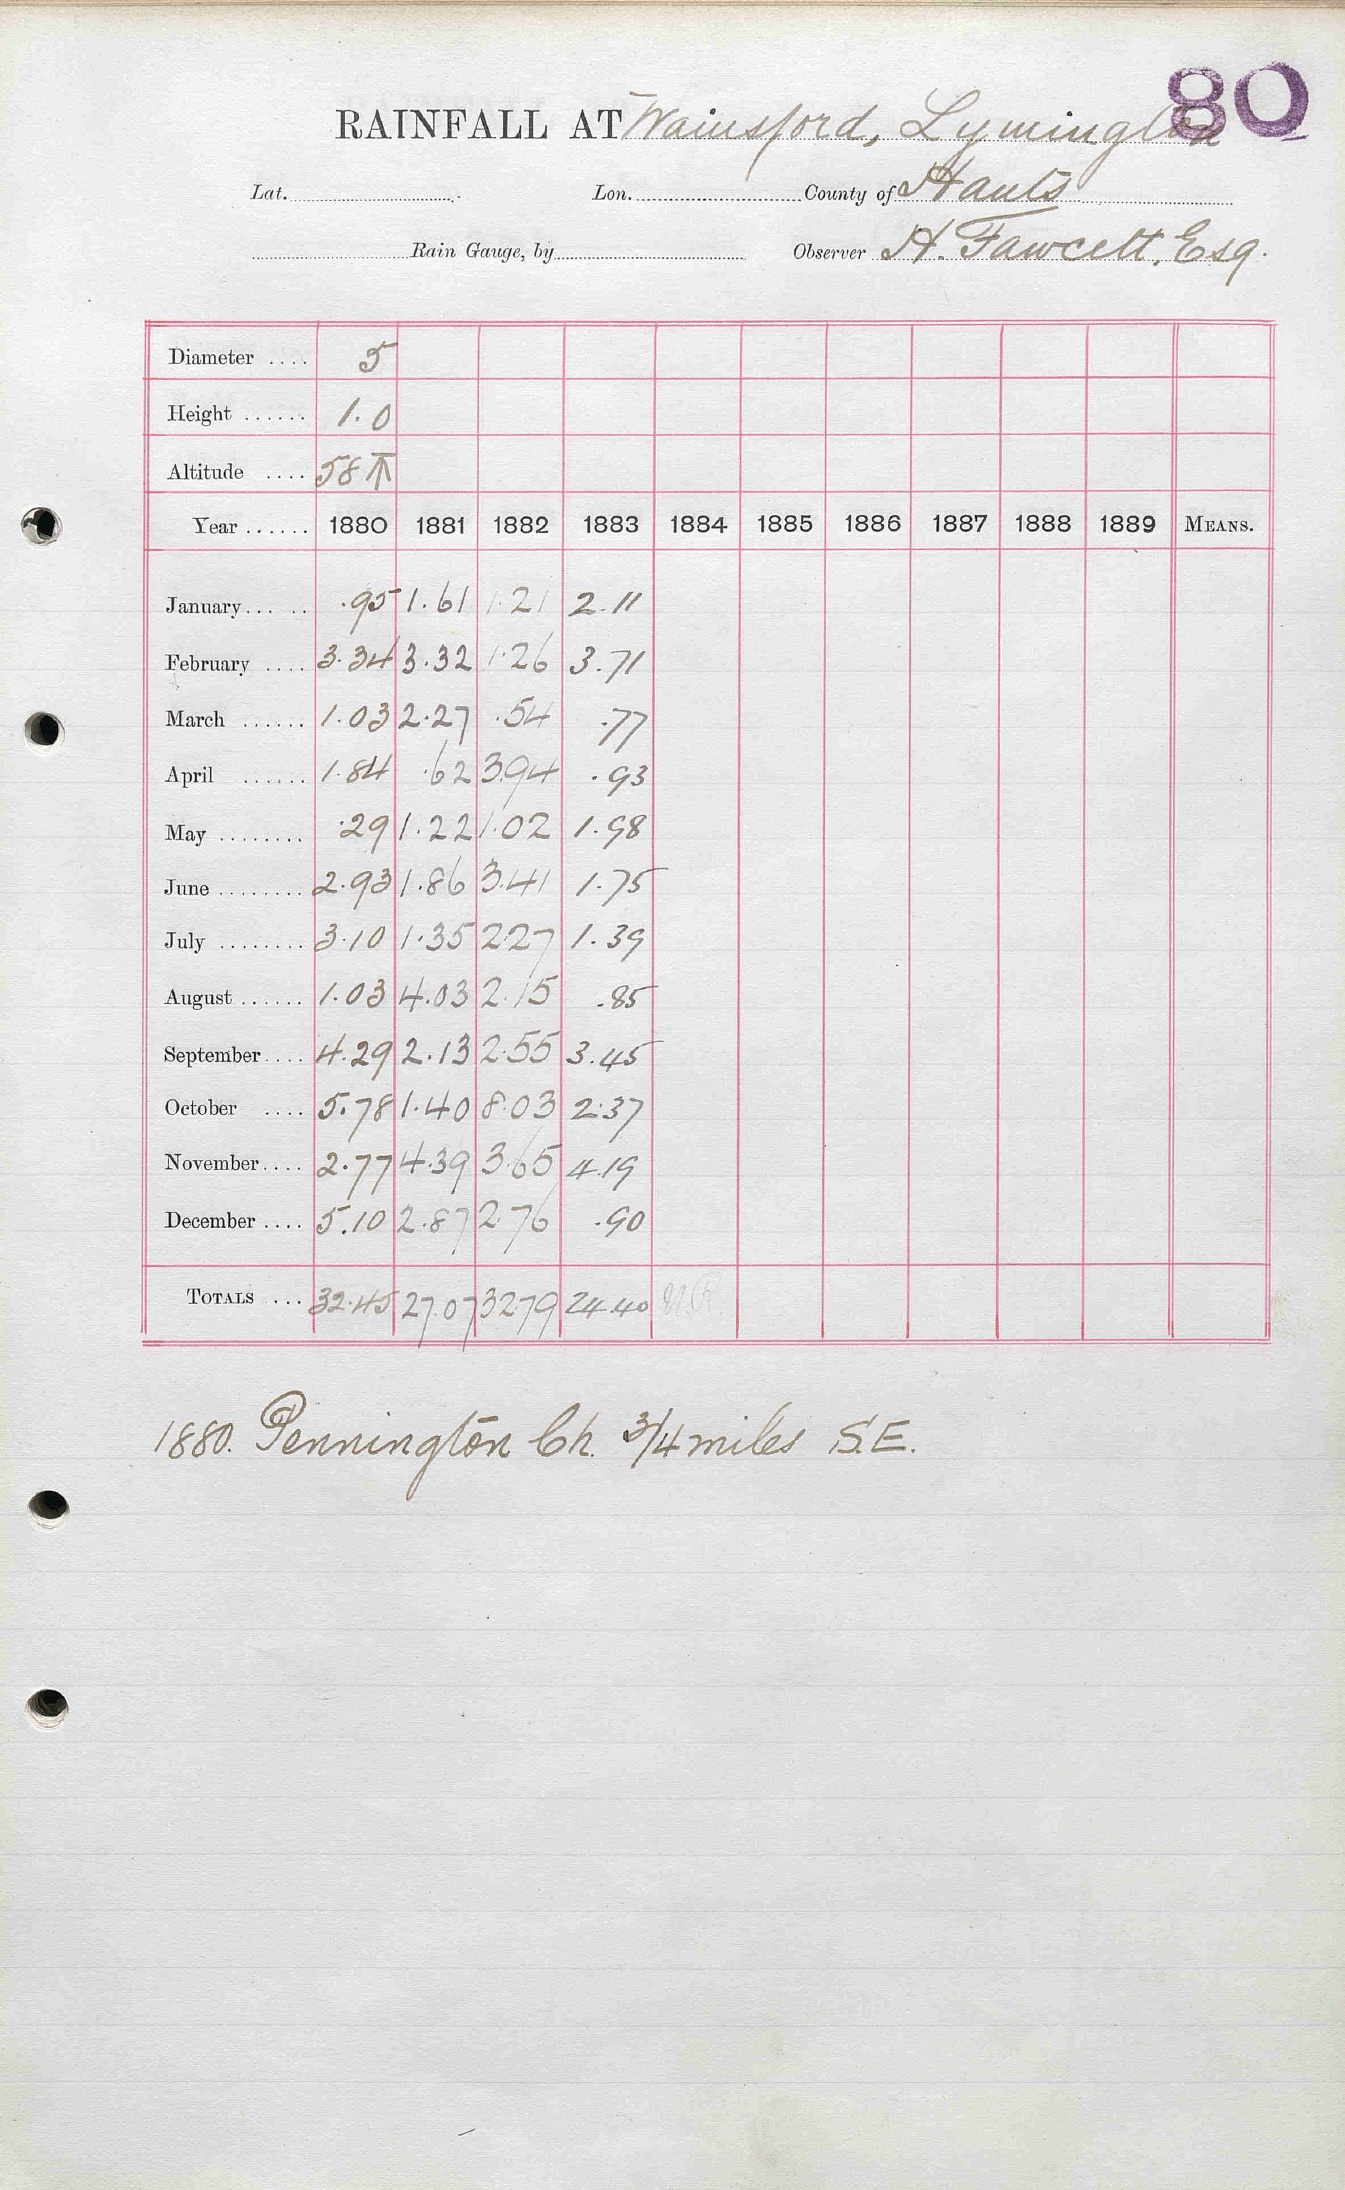 80
RAINFALL AT Wainsford, Lymington
Lat. Lon. County of Hants
Rain Gauge, by Observer H. Fawcett, Esq.
Diameter .... 5
Height ...... 1.0
Altitude .... 58 T
Year ...... 1880 1881 1882 1883 1884 1885 1886 1887 1888 1889 MEANS.
January... .. .95 1.61 1.21 2.11
February .... 3.34 3.32 1.26 3.71
March ...... 1.03 2.27 .54 .77
April ...... 1.84 .62 3.94 .93
May ........ .29 1.22 1.02 1.98
June ........ 2.93 1.86 3.41 1.75
July ........ 3.10 1.35 2.27 1.39
August ...... 1.03 4.03 2.15 .85
September.... 4.29 2.13 2.55 3.45
October .... 5.78 1.40 8.03 2.37
November.... 2.77 4.39 3.65 4.19
December .... 5.10 2.87 2.76 .90
TOTALS ... 32.45 27.07 32.79 24.40 N.R.
1880. Pennington Ch. 3/4 miles S.E.